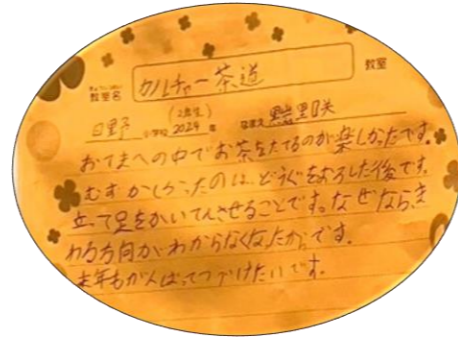 きょうしつめい
教室名 カルチャー茶道 教室
(2年生)
日野 小学校 2024 年
おてまへの中でお茶をたてるのが楽しかったです。
むずかしかったのは、どうぐをおろした後です。
立って足をかいてんさせることです。なぜなら、ま
わる方向がわからなくなったからです。
来年もがんばってつづけたいです。